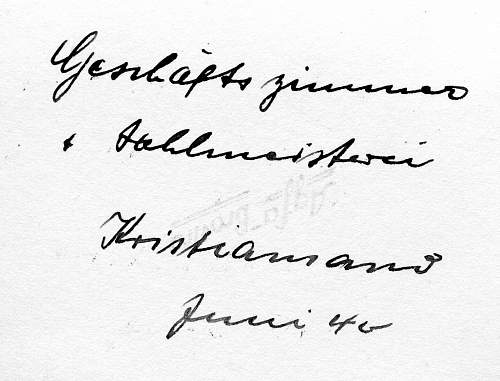 Geschäftszimmer
+ Zahlmeisterei
Kristiansand
Juni 40